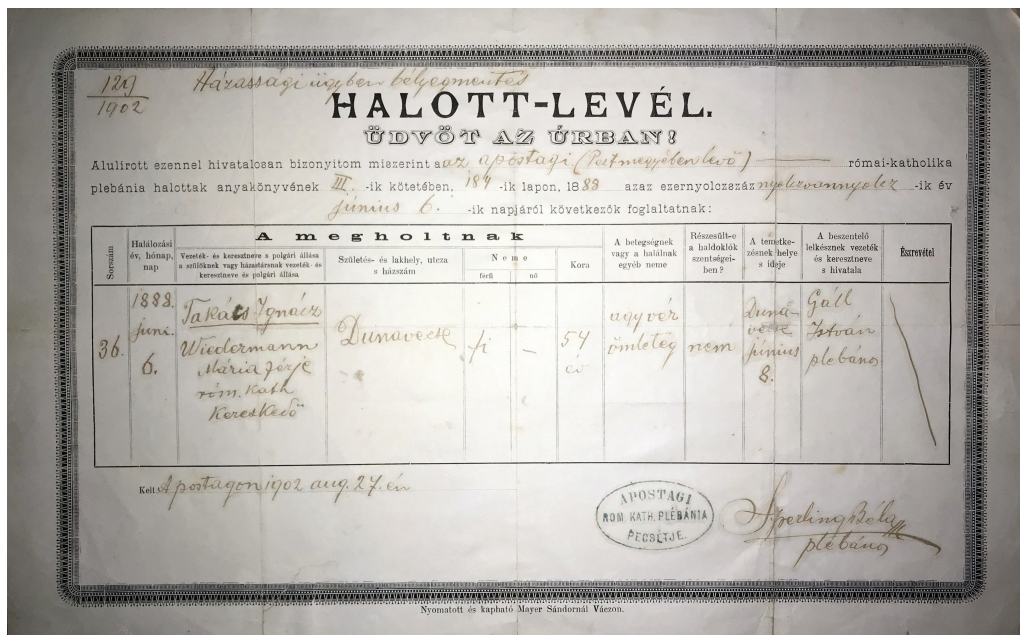 129
1902
Házassági ügyben bélyegmentes
HALOTT-LEVÉL.
ÜDVÖT AZ ÚRBAN!
Alulirott ezennel hivatalosan bizonyitom miszerint a az apostagi (Pestmegyében levő) római-katholika
plebánia halottak anyakönyvének III. -ik kötetében, 184 -ik lapon, 1888 azaz ezernyolczszáz nyolczvannyolcz -ik év
június 6. -ik napjáról következők foglaltatnak:
Sorszám
Halálozási év, hónap, nap
A megholtnak
Vezeték- és keresztneve s polgári állása
a szülőknek vagy házastársnak vezeték- és
keresztneve és polgári állása
Születés- és lakhely, utcza
s házszám
Neme
férfi
nő
Kora
A betegségnek
vagy a halálnak
egyéb neme
Részesült-e
a haldoklók
szentségei-
ben?
A temetke-
zésnek helye
s ideje
A beszentelő
lelkésznek vezeték
és keresztneve
s hivatala
Észrevétel
36.
1888.
juni.
6.
Takáts Ignácz
Wiedermann
Mária férje
róm. kath
kereskedő
Dunavecse
fi
-
54
év
agyvér
ömleteg
nem
Duna-
vecse
június
8.
Gáll
István
plebános
Kelt Apostagon 1902 aug. 27.-én
APOSTAGI
ROM. KATH. PLÉBÁNIA
PECSÉTJE.
Sperling Béla
plebános
Nyomatott és kapható Mayer Sándornál Váczon.